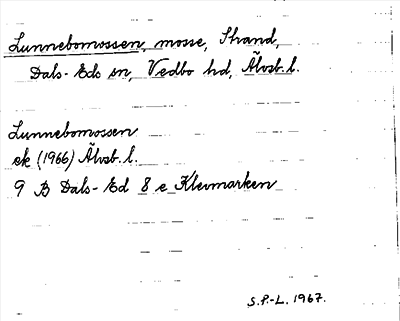 Lunnebomossen, mosse, Strand,
Dals-Eds sn, Vedbo hd, Älvsb. l.
Lunnebomossen
ek (1966) Älvsb. l.
9 B Dals-Ed 8 e Klevmarken
S.P.-L. 1967.